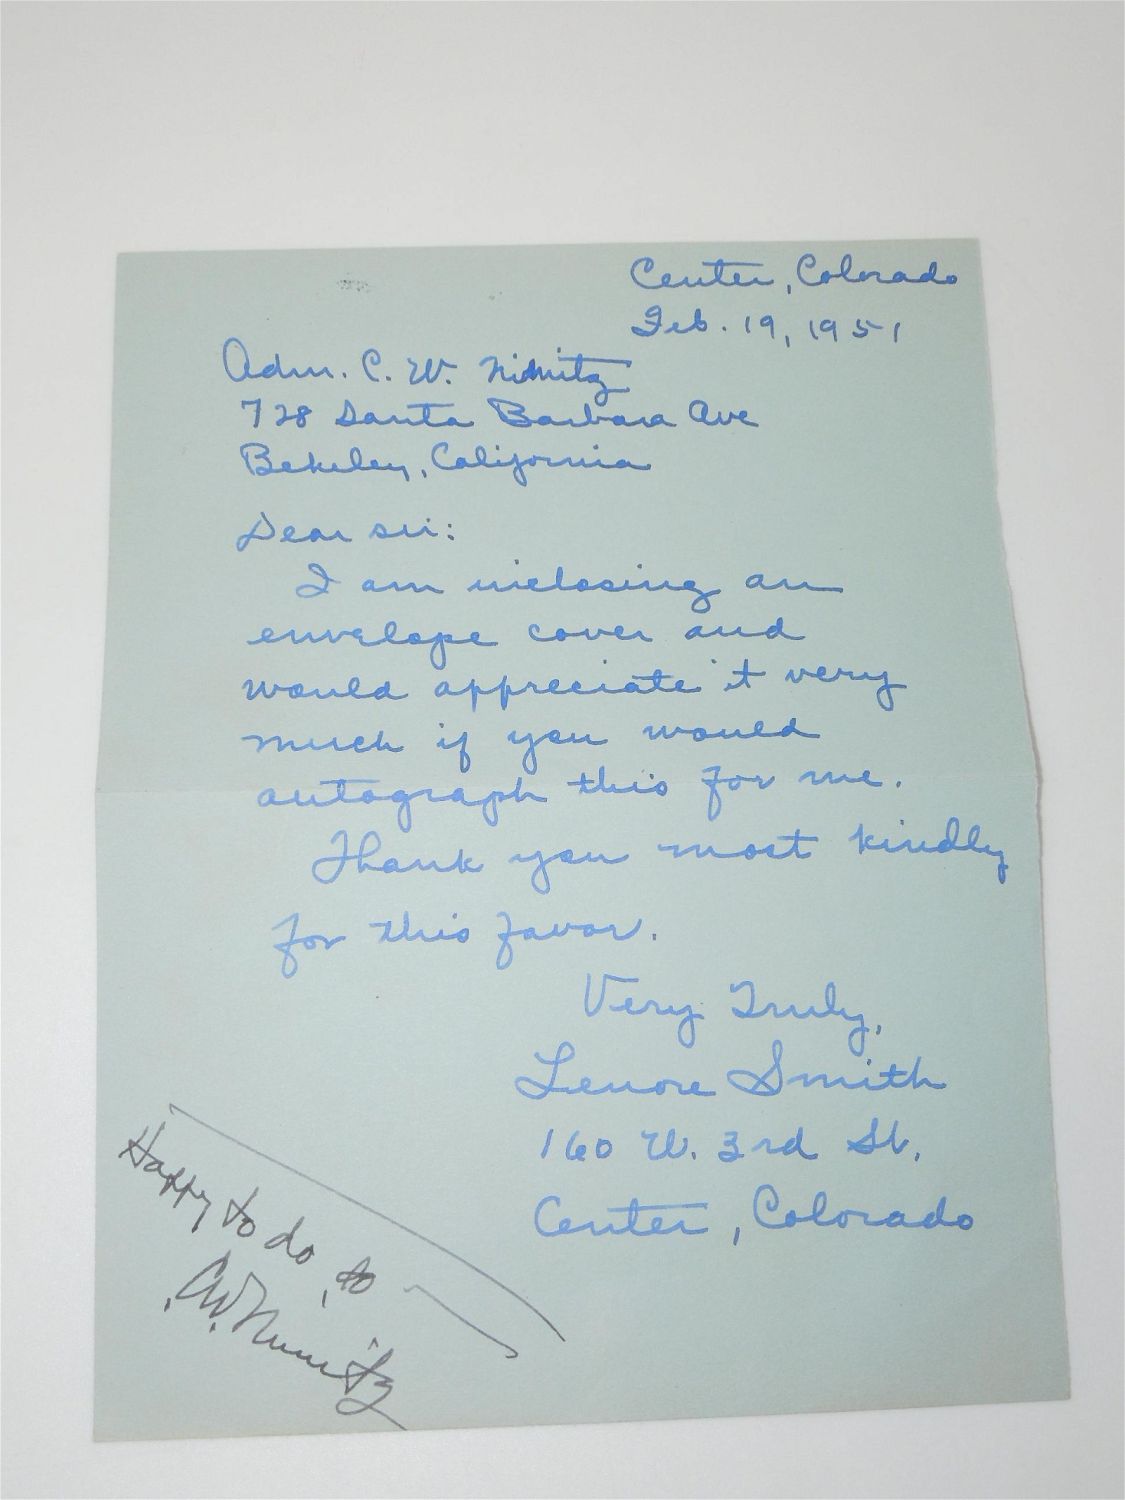 Center, Colorado
Feb. 19, 1951
Adm. C. W. Nimitz
728 Santa Barbara Ave
Bekeley, California
Dear sir:
I am inclosing an
envelope cover and
would appreciate it very
much if you would
autograph this for me.
Thank you most kindly
for this favor.
Very Truly,
Lenore Smith
160 W. 3rd St.
Center, Colorado
Happy to do so
C.W. Nimitz